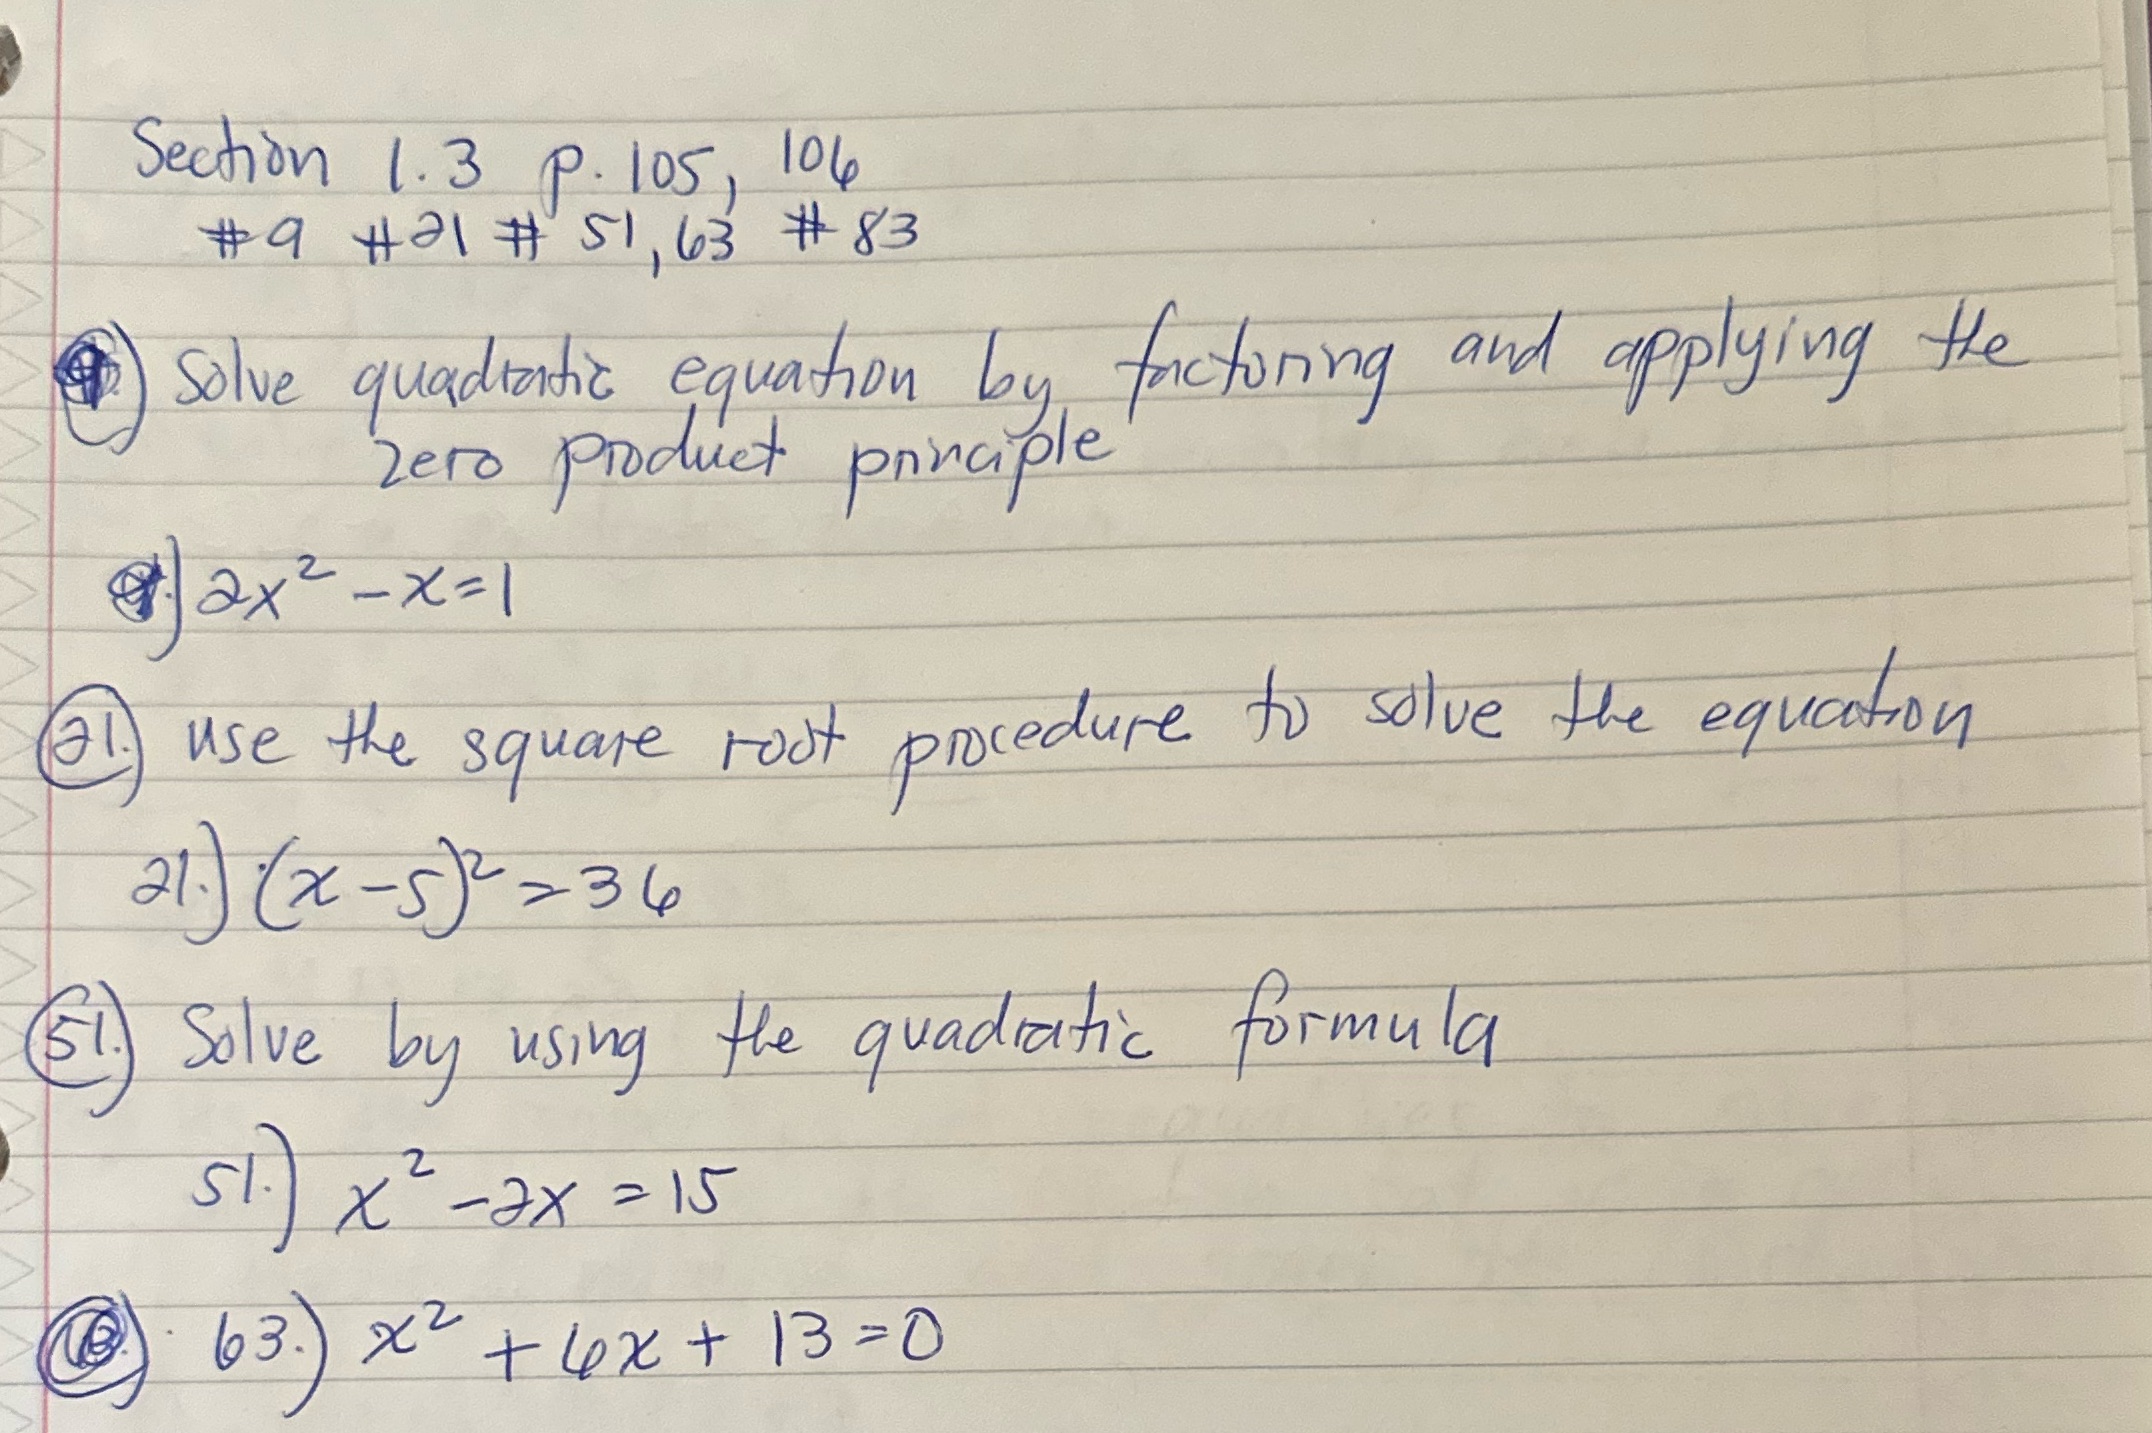 Section 1.3 p. 105, 106
#9 #21 # 51, 63 # 83
9.) Solve quadratic equation by factoring and applying the
zero product principle
9.) 2x² - x = 1
21.) use the square root procedure to solve the equation
21.) (x - 5)² = 36
51.) Solve by using the quadratic formula
51.) x² - 2x = 15
63.) x² + 6x + 13 = 0